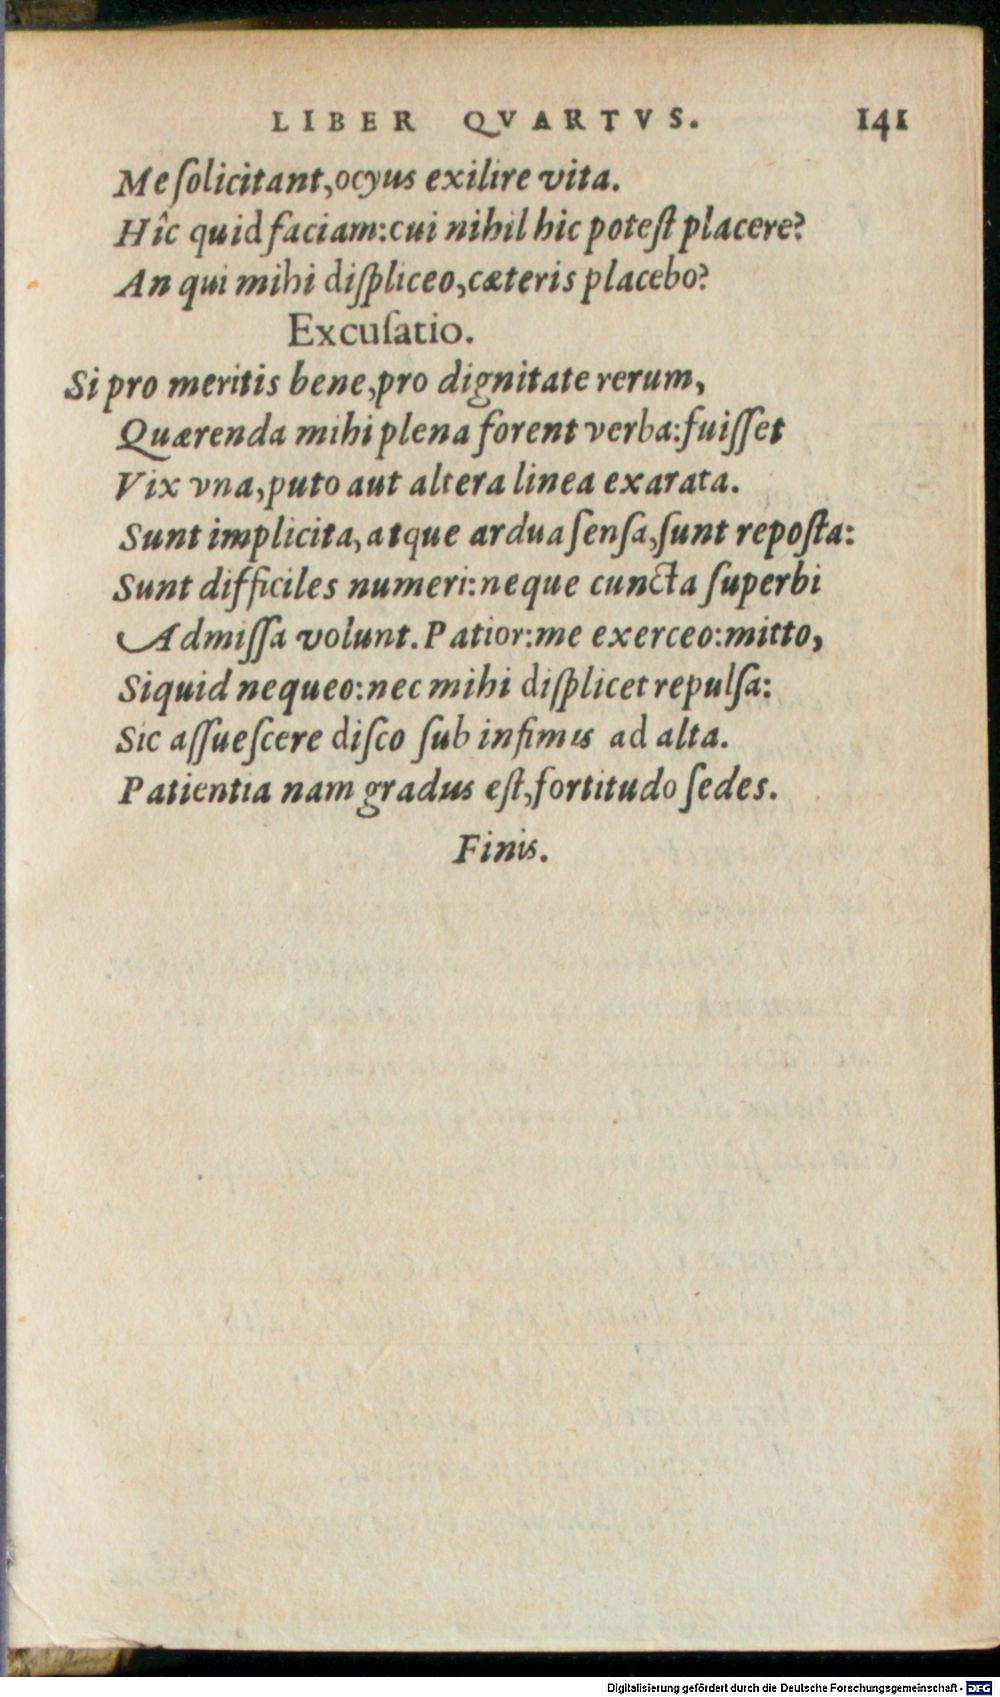 LIBER QVARTVS. 141
Me ſolicitant, ocyus exilire vita.
Hîc quid faciam: cui nihil hic poteſt placere?
An qui mihi diſpliceo, cæteris placebo?
Excuſatio.
Si pro meritis bene, pro dignitate rerum,
Quærenda mihi plena forent verba: fuiſſet
Vix vna, puto aut altera linea exarata.
Sunt implicita, atque ardua ſenſa, ſunt repoſta:
Sunt difficiles numeri: neque cuncta ſuperbi
Admiſſa volunt. Patior: me exerceo: mitto,
Siquid nequeo: nec mihi diſplicet repulſa:
Sic aſſueſcere diſco ſub infimis ad alta.
Patientia nam gradus eſt, fortitudo ſedes.
Finis.
Digitalisierung gefördert durch die Deutsche Forschungsgemeinschaft - DFG